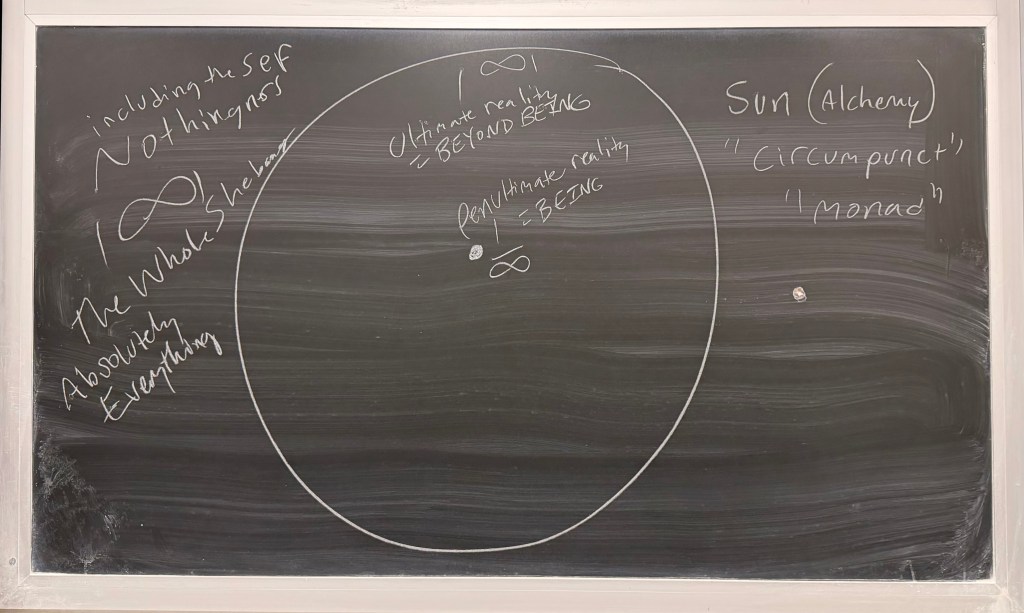 including the Self
Nothingness
|∞|
The Whole Shebang
Absolutely
Everything
|∞|
Ultimate reality
= BEYOND BEING
Penultimate reality
= BEING
1
∞
Sun (Alchemy)
"Circumpunct"
"Monad"